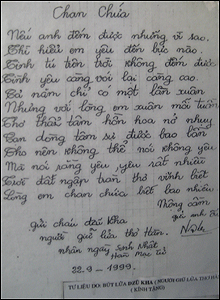 Chan Chứa
Nếu anh đếm được những vì sao
Thì hiểu em yêu đến bậc nào
Tình tứ tiên trời không đếm được
Tình yêu càng với lại càng cao
Cả năm chỉ có một lần xuân
Nhưng với lòng em xuân mỗi tuần
Thơ thới tâm hồn hoa nở nhụy
Can dòng tâm sự được bao lần
Cho nên không thể nói không yêu
Mà nói rằng yêu, yêu rất nhiều
Cuối đất ngọn tuần thơ vĩnh biệt
Lòng em chan chứa biết bao nhiêu
Mông Cầm
gửi anh
gửi cháu Dzũ Kha
người giữ lửa thơ Hàn.
nhân ngày sinh nhật
Hàn Mạc Tử
22.9 - 1999.
TƯ LIỆU DO: BÚT LỬA DZŨ KHA (NGƯỜI GIỮ LỬA THƠ HÀN)
(KÍNH TẶNG)